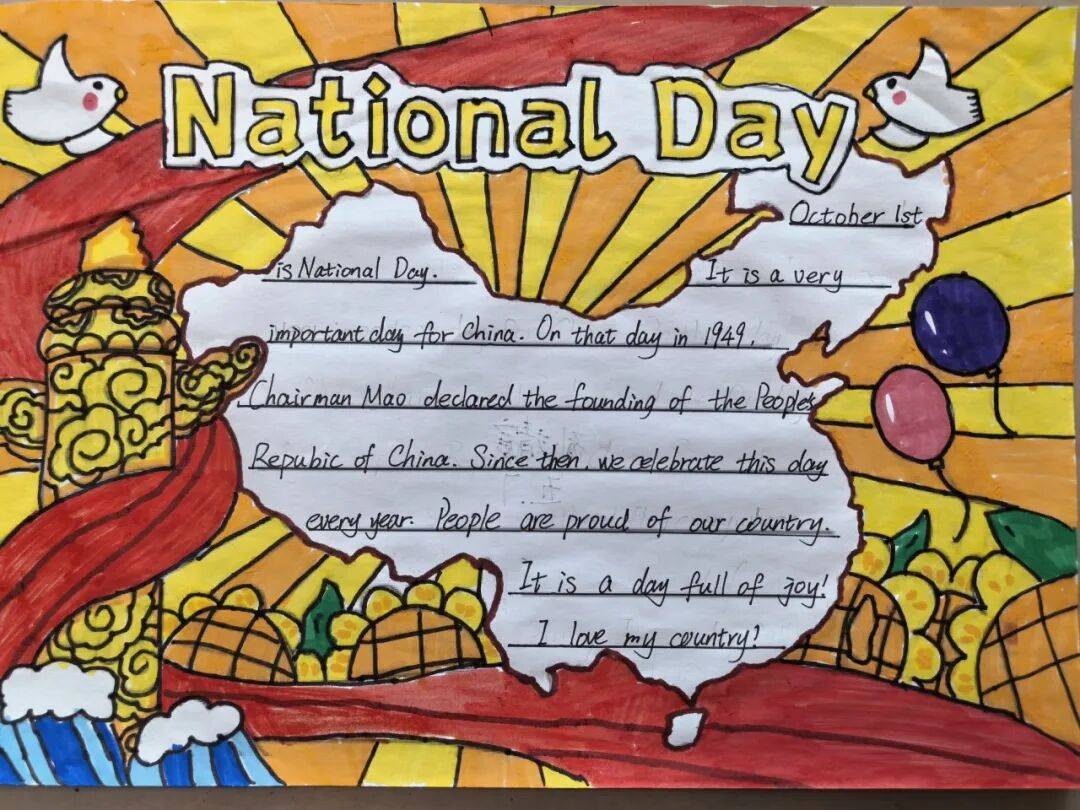 National Day
October 1st
is National Day. It is a very
important day for China. On that day in 1949,
Chairman Mao declared the founding of the People's
Repubic of China. Since then, we celebrate this day
every year. People are proud of our country.
It is a day full of joy!
I love my country!